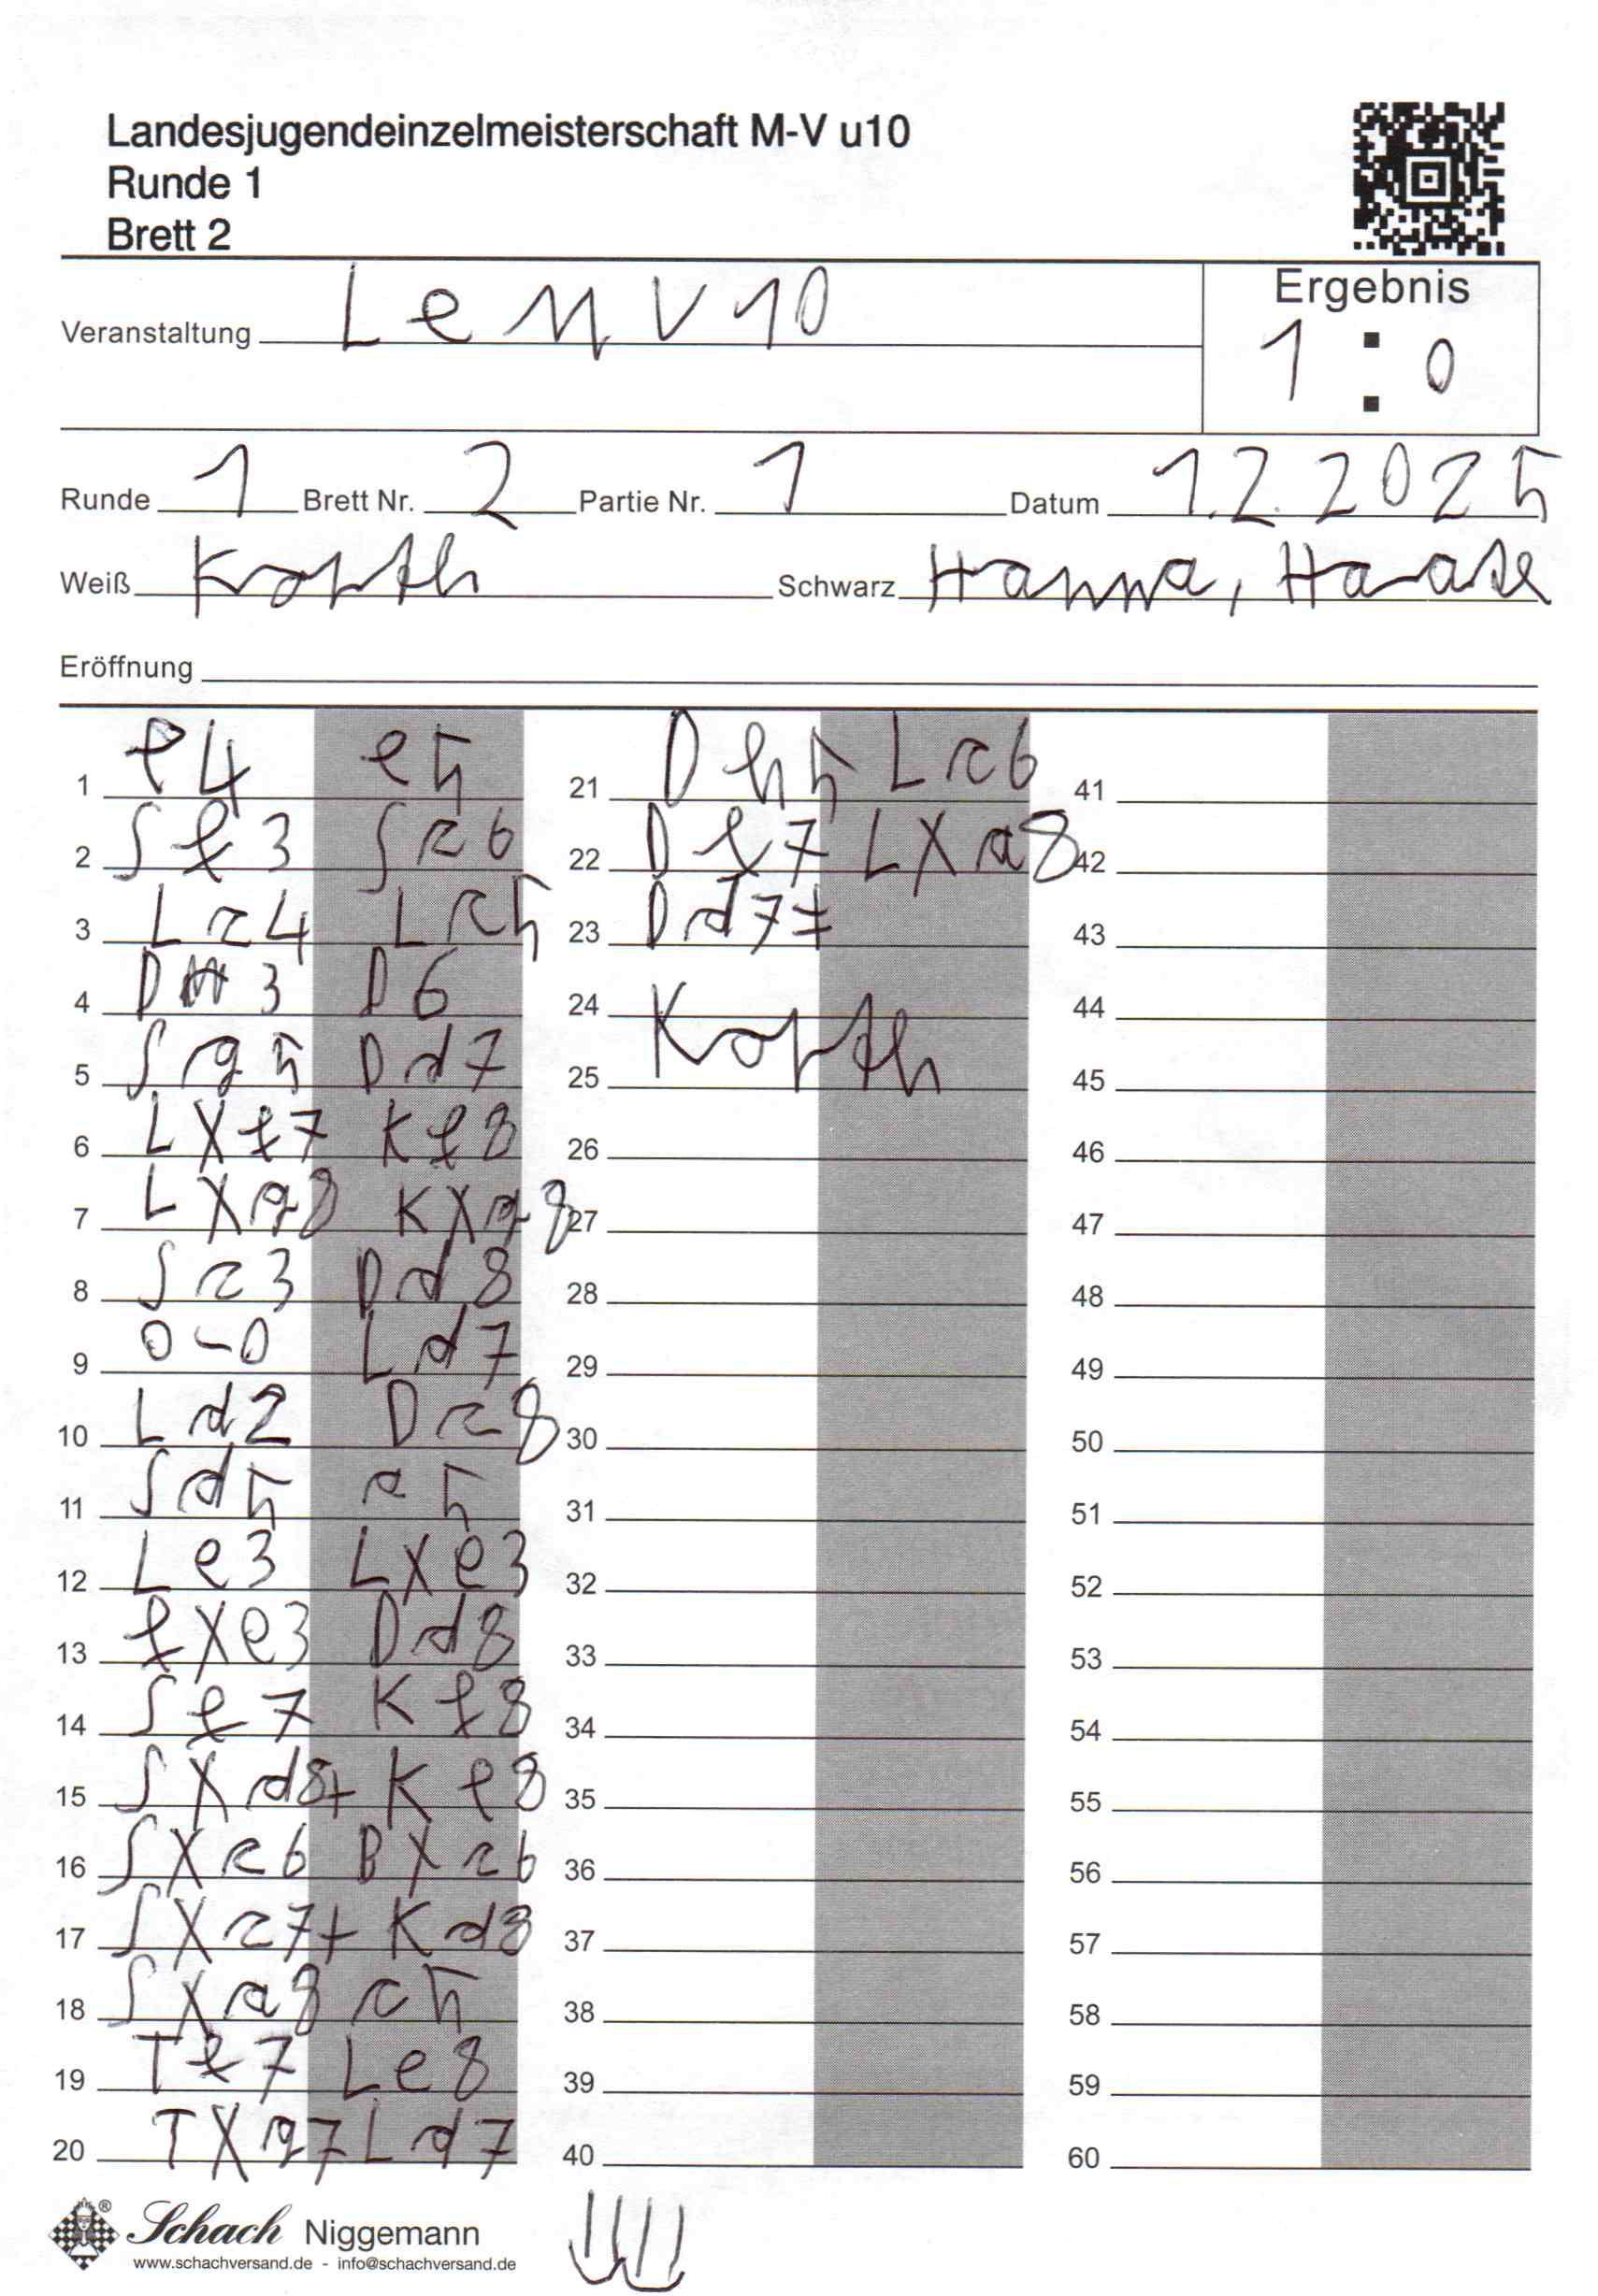 Landesjugendeinzelmeisterschaft M-V u10
Runde 1
Brett 2
Veranstaltung LeMV10
Ergebnis
1 : 0
Runde 1 Brett Nr. 2 Partie Nr. 1 Datum 1.2.2025
Weiß Schwarz Hanna,
Eröffnung
1 e4 e5
2 Sf3 Sc6
3 Lc4 Lc5
4 D 3 D6
5 Sg5 Dd7
6 LXf7 Kf8
7 LXg8 KXg8
8 Sc3 Dd8
9 0-0 Ld7
10 Ld2 Dc8
11 Sd5 a5
12 Le3 LXe3
13 fXe3 Dd8
14 Sf7 Kf8
15 SXd8+ Ke8
16 SXc6 BXc6
17 SXc7+ Kd8
18 SXa8 c5
19 Tf7 Le8
20 TXg7 Ld7
21 Dh5 Lc6
22 Df7 LXa8
23 Dd7‡
24
25
26
27
28
29
30
31
32
33
34
35
36
37
38
39
40
41
42
43
44
45
46
47
48
49
50
51
52
53
54
55
56
57
58
59
60
Schach Niggemann
www.schachversand.de - info@schachversand.de